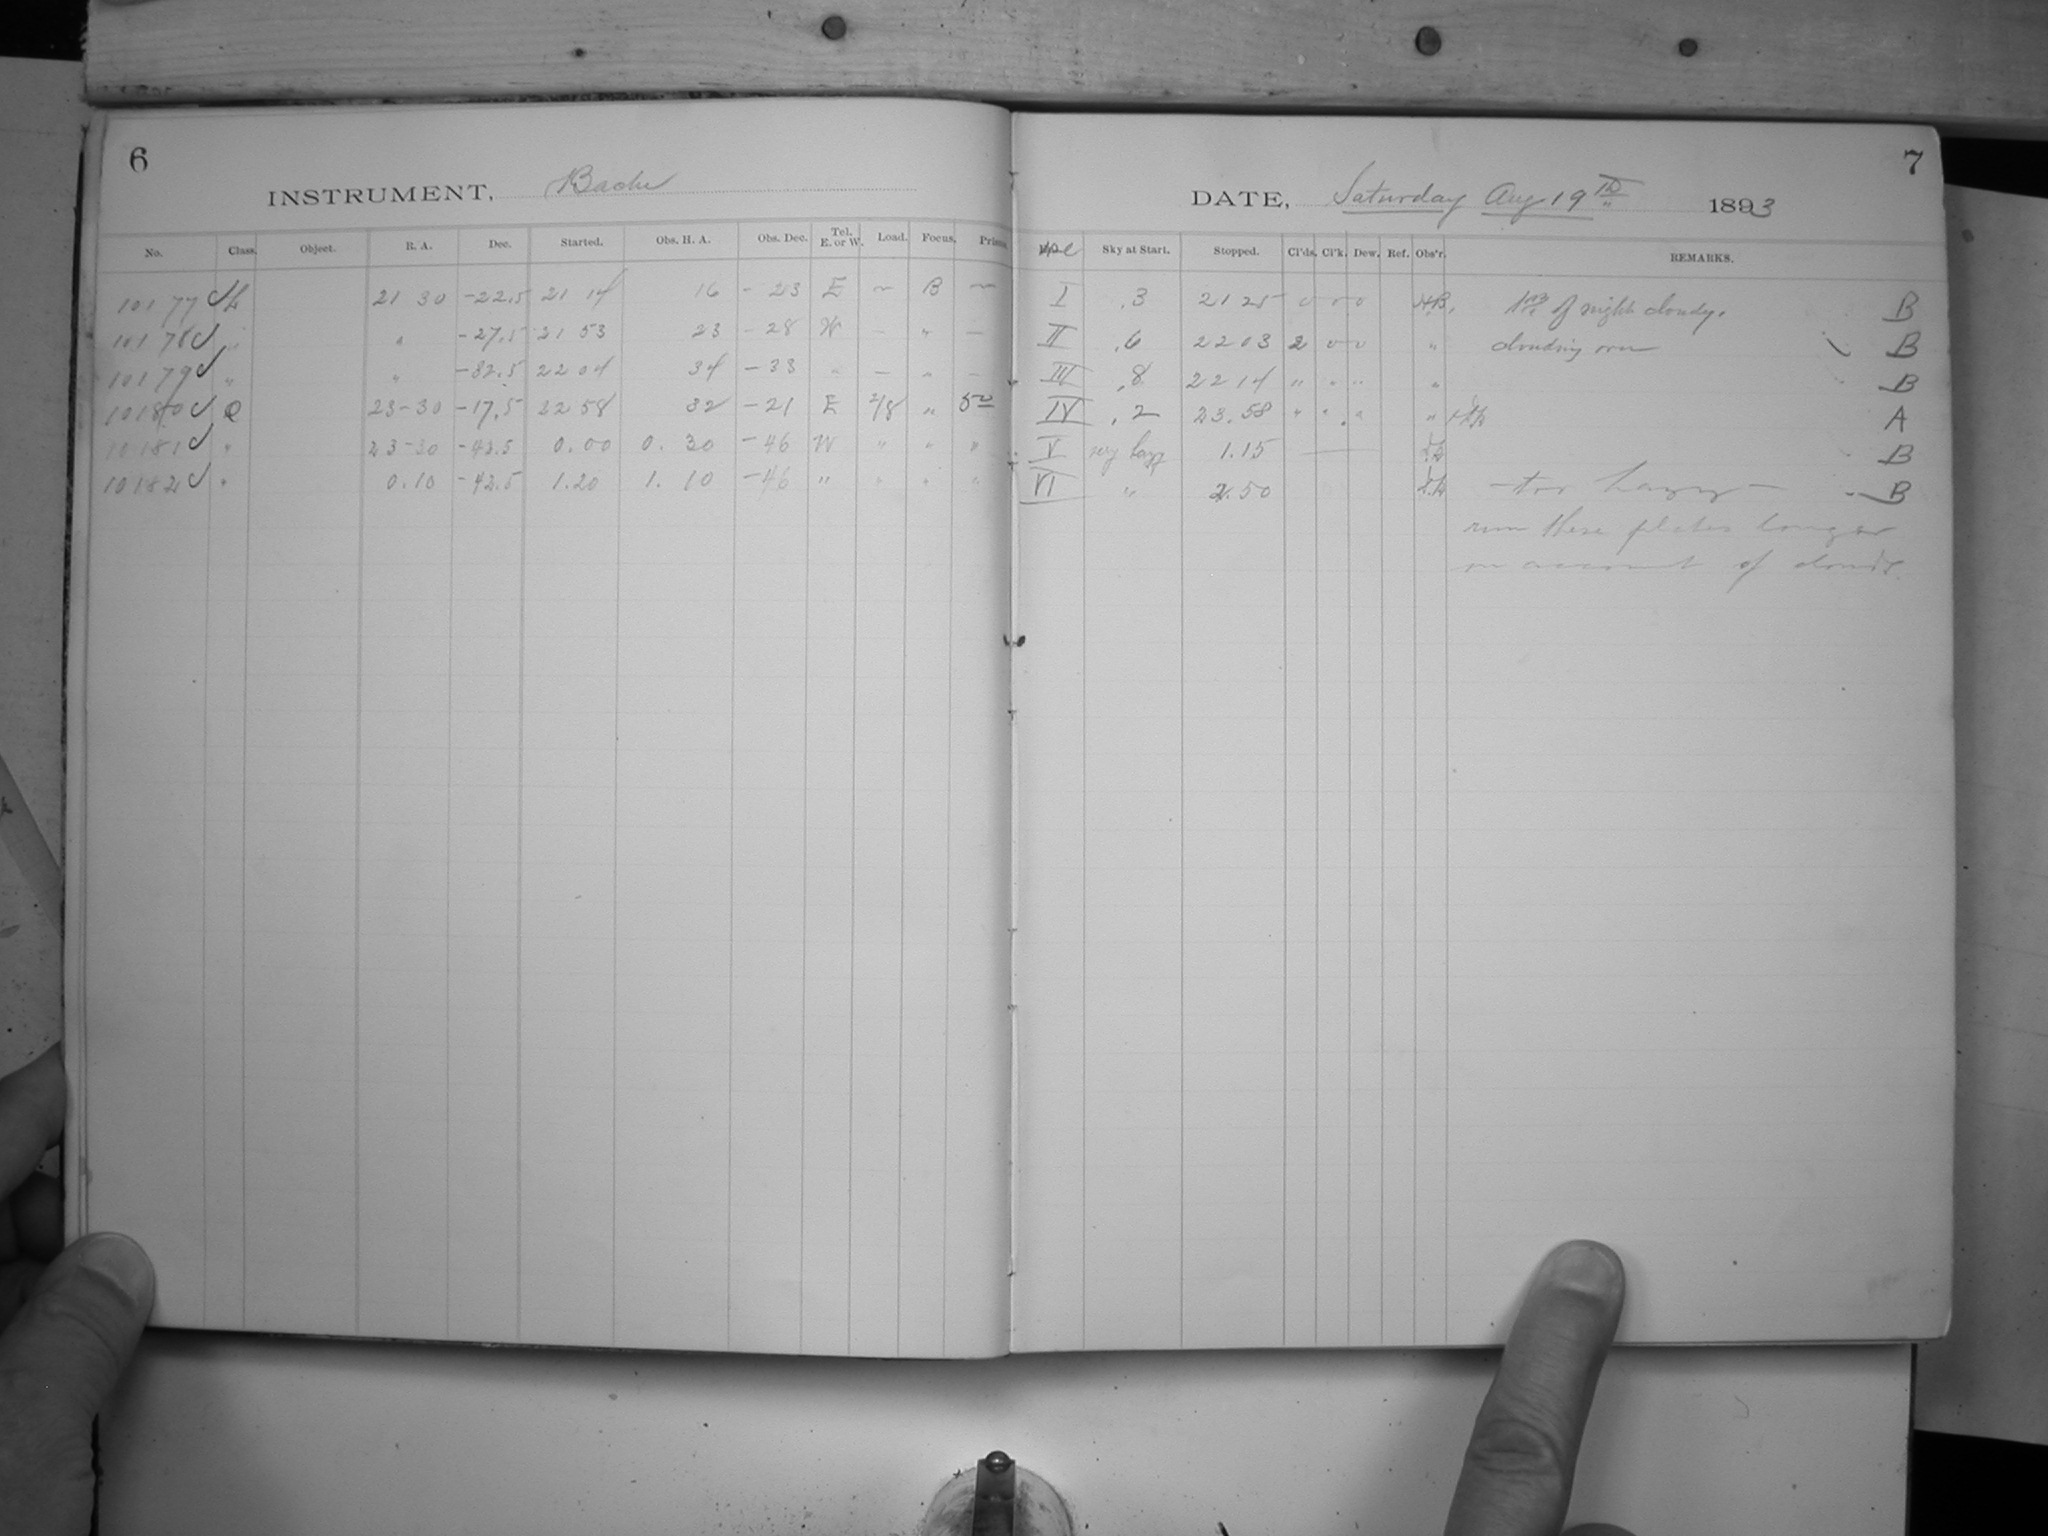 6
INSTRUMENT, Bache
No. Class. Object. R. A. Dec. Started. Obs. H. A. Obs. Dec. Tel. E. or W. Load. Focus. Prism.
10177 L 21 30 -22.5 21 14 16 - 23 E ~ B ~
10178 " " -27.5 21 53 23 - 28 W - " -
10179 " " -32.5 22 04 34 - 33 " - " -
10180 Q 23-30 -17.5 22 58 32 -21 E 2/8 "
10181 " 23-30 -42.5 0.00 0. 30 -46 W " " "
10182 " 0.10 -42.5 1.20 1. 10 -46 " " " "
7
DATE, Saturday Aug 19th 1893
Sky at Start. Stopped. Cl'ds. Cl'k. Dew. Ref. Obs'r. REMARKS.
I .3 21 25 0 0 0 of night cloudy. B
II .6 22 03 2 0 0 " clouding over B
III .8 22 14 " " " " B
IV .2 23.58 " " " " A
V very hazy 1.15 B
VI " 2.50 - too hazy - B
run these plates longer
on account of clouds.